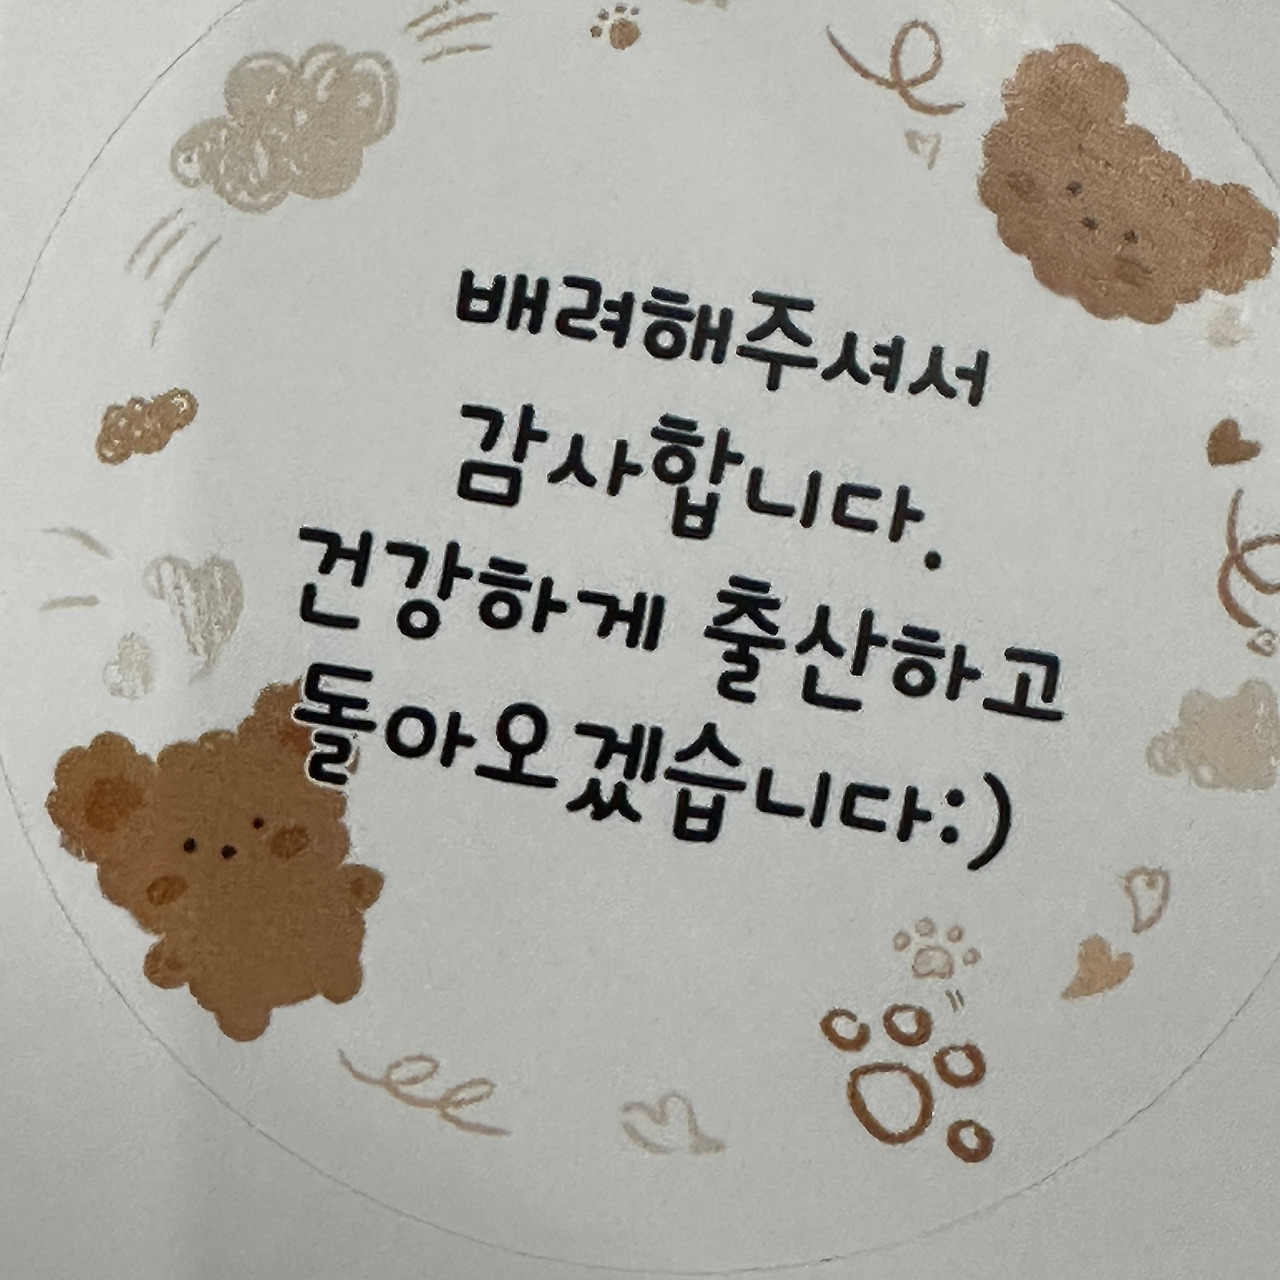 배려해주셔서
감사합니다.
건강하게 출산하고
돌아오겠습니다:)